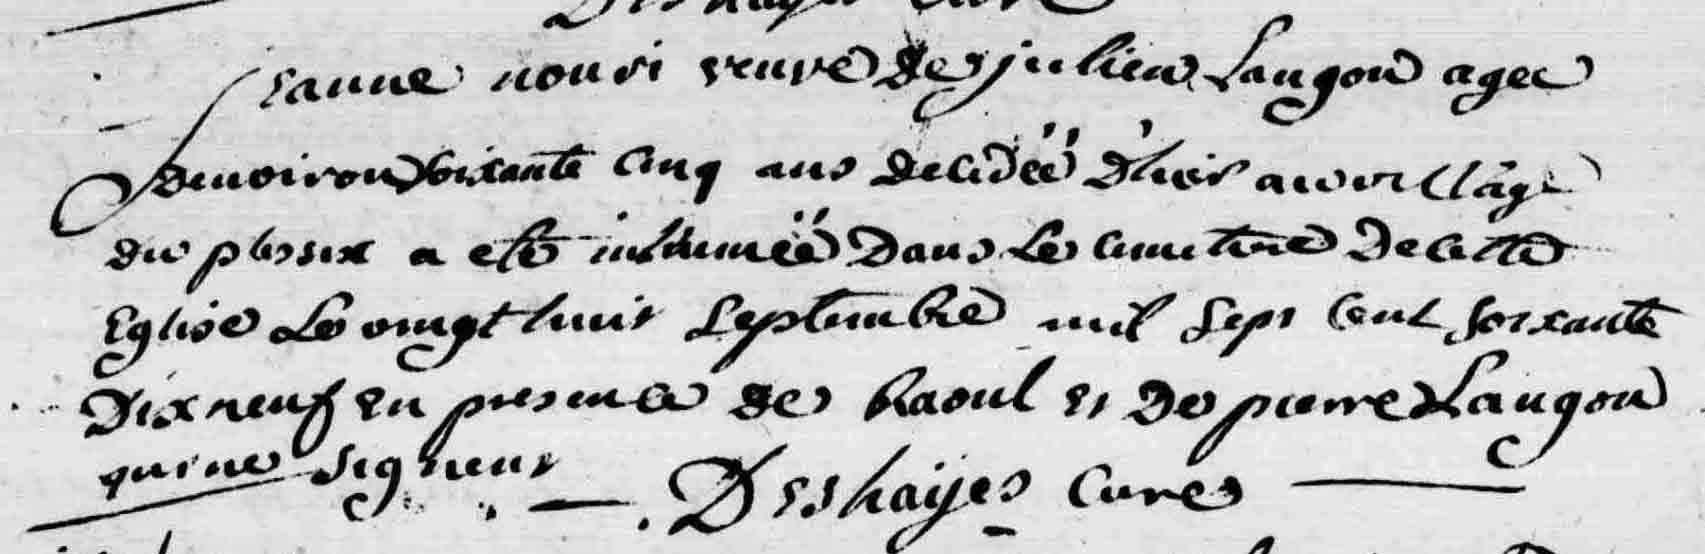 Deshayes Curé
Jeanne nouri veuve de julien Langou agee
denviron soixante Cinq ans decedéé D'hier au village
du plessix a eté inhuméé Dans Le cimetiere De cette
Eglise Le vingt huit Septembre mil Sept Cent soixante
Dix neuf En presence de Raoul et De pierre Langou
qui ne signent
Deshayes Curé